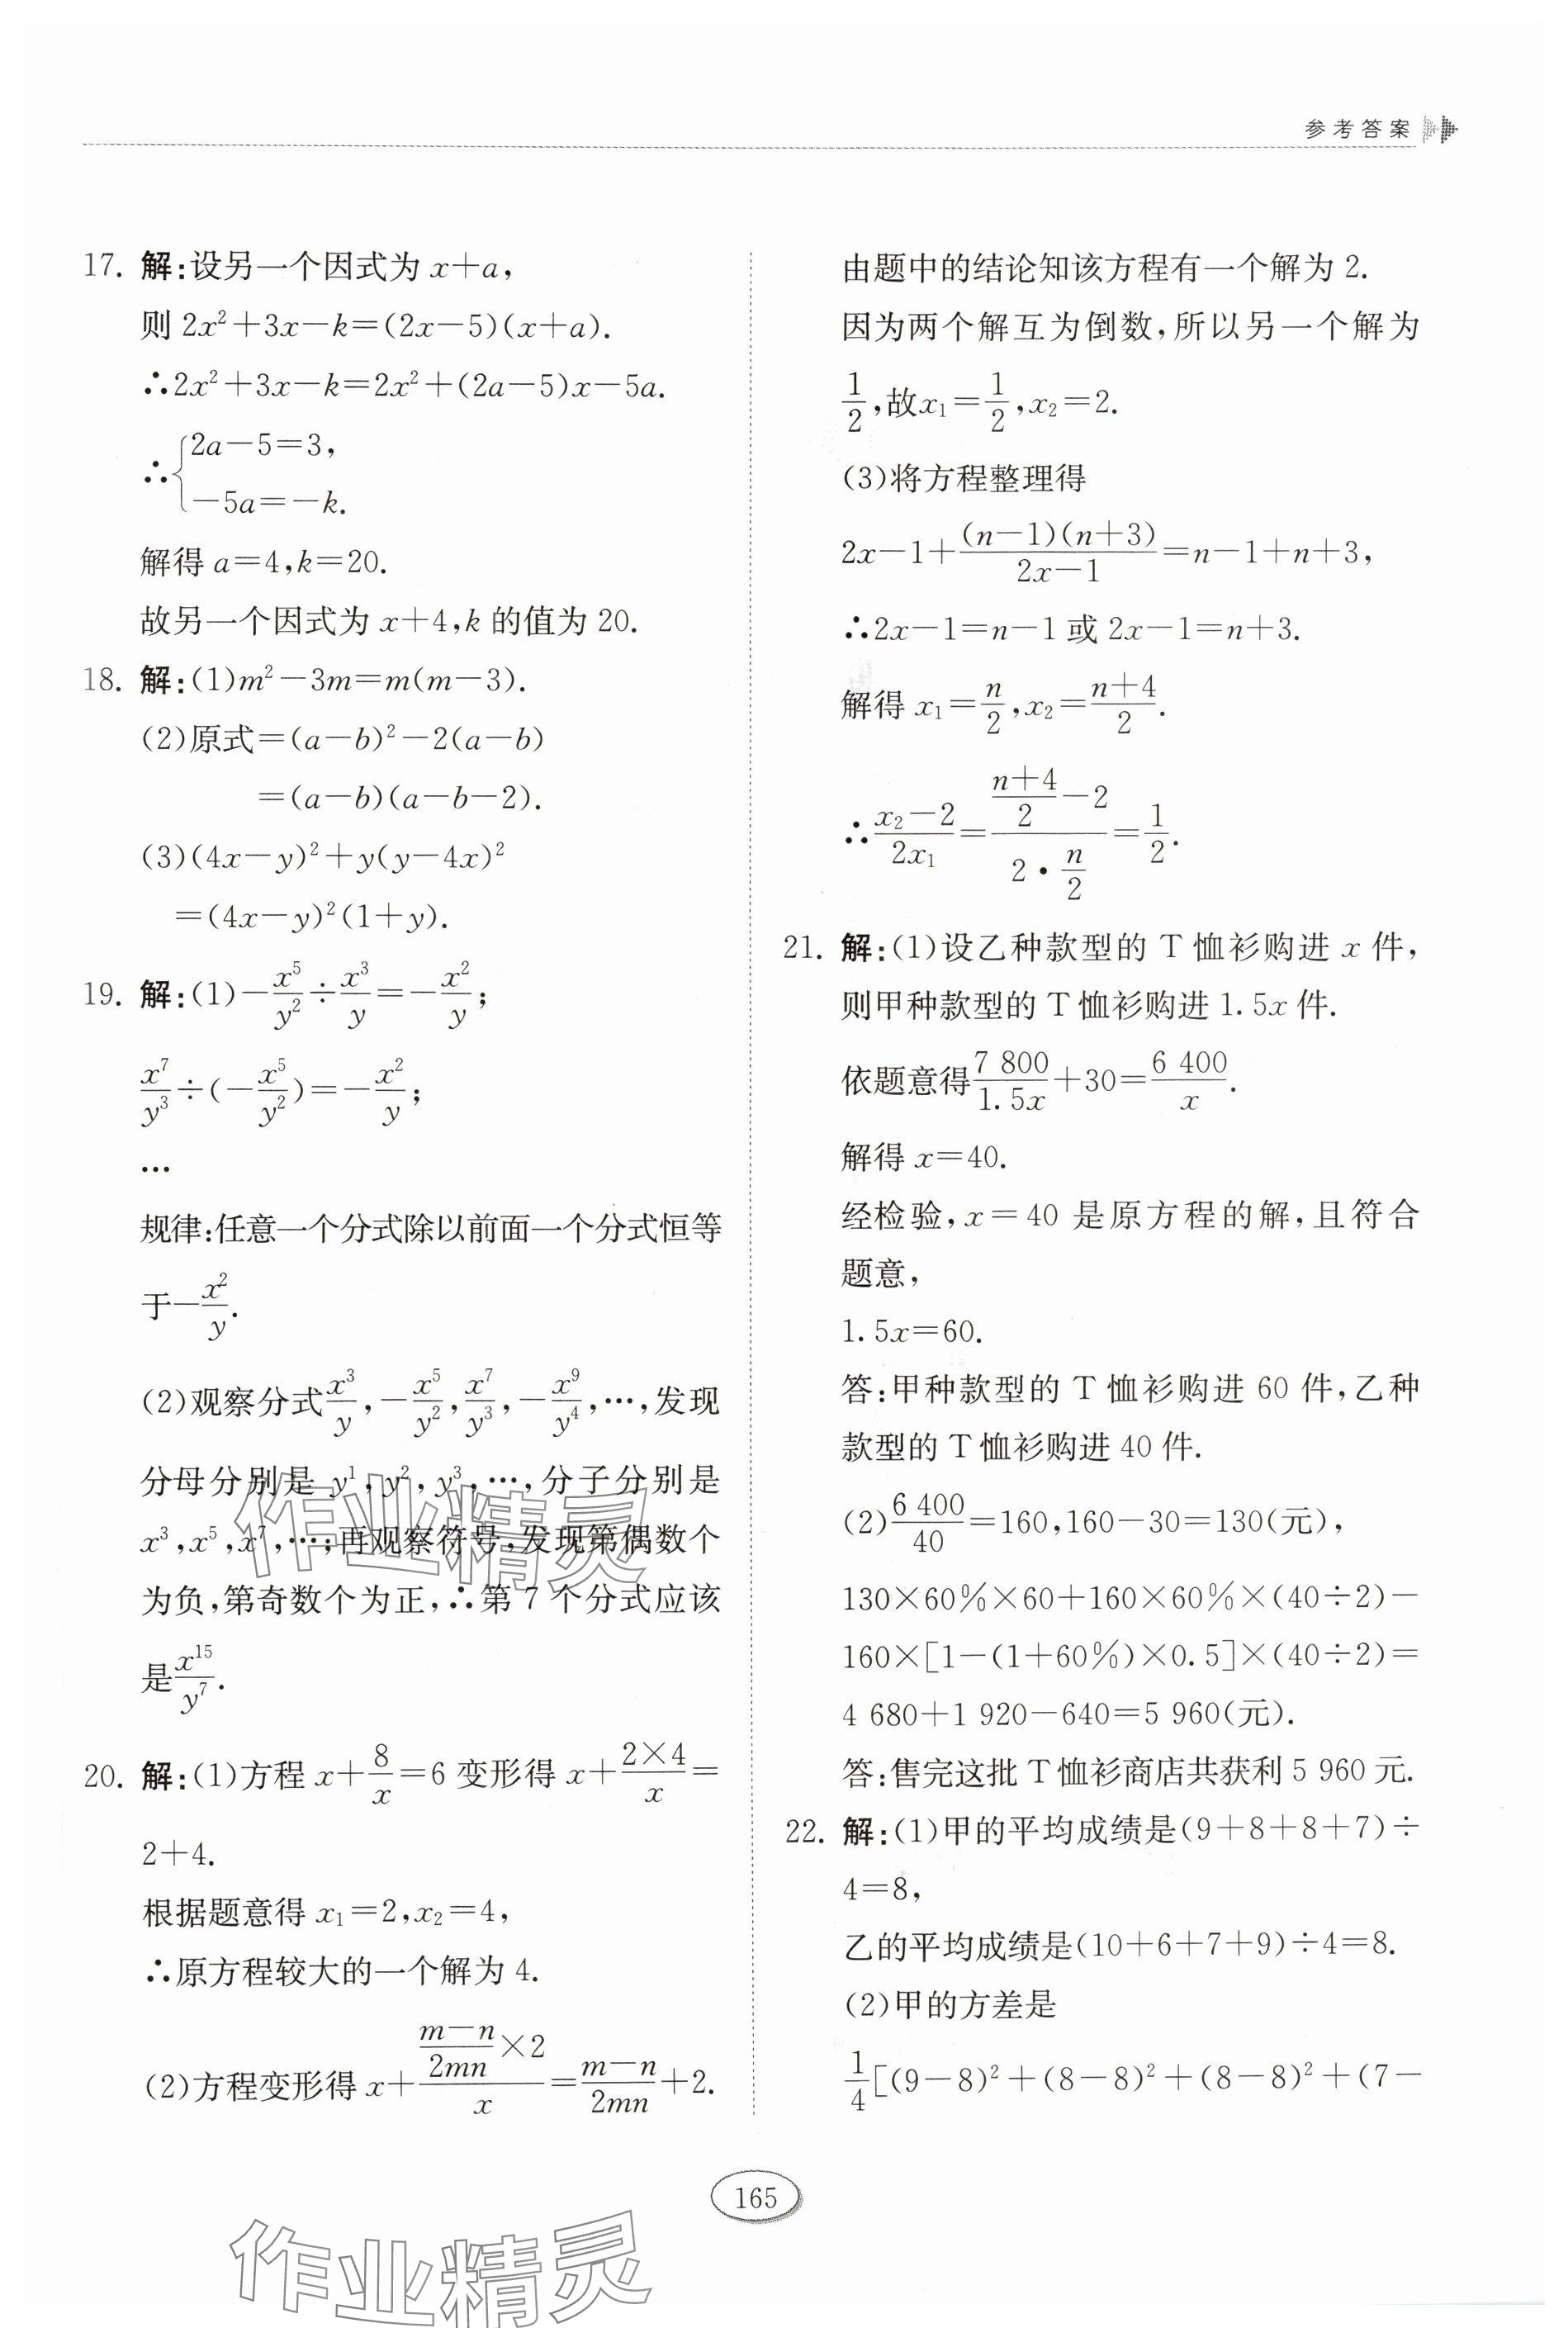 参考答案
17. 解:设另一个因式为 x+a,
则 2x²+3x−k=(2x−5)(x+a).
∴2x²+3x−k=2x²+(2a−5)x−5a.
∴{2a−5=3,
−5a=−k.
解得 a=4,k=20.
故另一个因式为 x+4,k 的值为 20.
18. 解:(1)m²−3m=m(m−3).
(2)原式=(a−b)²−2(a−b)
=(a−b)(a−b−2).
(3)(4x−y)²+y(y−4x)²
=(4x−y)²(1+y).
19. 解:(1)−x⁵/y²÷x³/y=−x²/y;
x⁷/y³÷(−x⁵/y²)=−x²/y;
…
规律:任意一个分式除以前面一个分式恒等
于−x²/y.
(2)观察分式x³/y,−x⁵/y²,x⁷/y³,−x⁹/y⁴,…,发现
分母分别是 y¹,y²,y³,…,分子分别是
x³,x⁵,x⁷,…;再观察符号,发现第偶数个
为负,第奇数个为正,∴第 7 个分式应该
是x¹⁵/y⁷.
20. 解:(1)方程 x+8/x=6 变形得 x+(2×4)/x=
2+4.
根据题意得 x₁=2,x₂=4,
∴原方程较大的一个解为 4.
(2)方程变形得 x+((m−n)/2mn×2)/x=(m−n)/2mn+2.
由题中的结论知该方程有一个解为 2.
因为两个解互为倒数,所以另一个解为
1/2,故x₁=1/2,x₂=2.
(3)将方程整理得
2x−1+(n−1)(n+3)/(2x−1)=n−1+n+3,
∴2x−1=n−1 或 2x−1=n+3.
解得 x₁=n/2,x₂=(n+4)/2.
∴(x₂−2)/2x₁=((n+4)/2−2)/(2·n/2)=1/2.
21. 解:(1)设乙种款型的 T 恤衫购进 x 件,
则甲种款型的 T 恤衫购进 1.5x 件.
依题意得7 800/1.5x+30=6 400/x.
解得 x=40.
经检验,x=40 是原方程的解,且符合
题意,
1.5x=60.
答:甲种款型的 T 恤衫购进 60 件,乙种
款型的 T 恤衫购进 40 件.
(2)6 400/40=160,160−30=130(元),
130×60%×60+160×60%×(40÷2)−
160×[1−(1+60%)×0.5]×(40÷2)=
4 680+1 920−640=5 960(元).
答:售完这批 T 恤衫商店共获利 5 960 元.
22. 解:(1)甲的平均成绩是(9+8+8+7)÷
4=8,
乙的平均成绩是(10+6+7+9)÷4=8.
(2)甲的方差是
1/4[(9−8)²+(8−8)²+(8−8)²+(7−
165
作业精灵
作业精灵